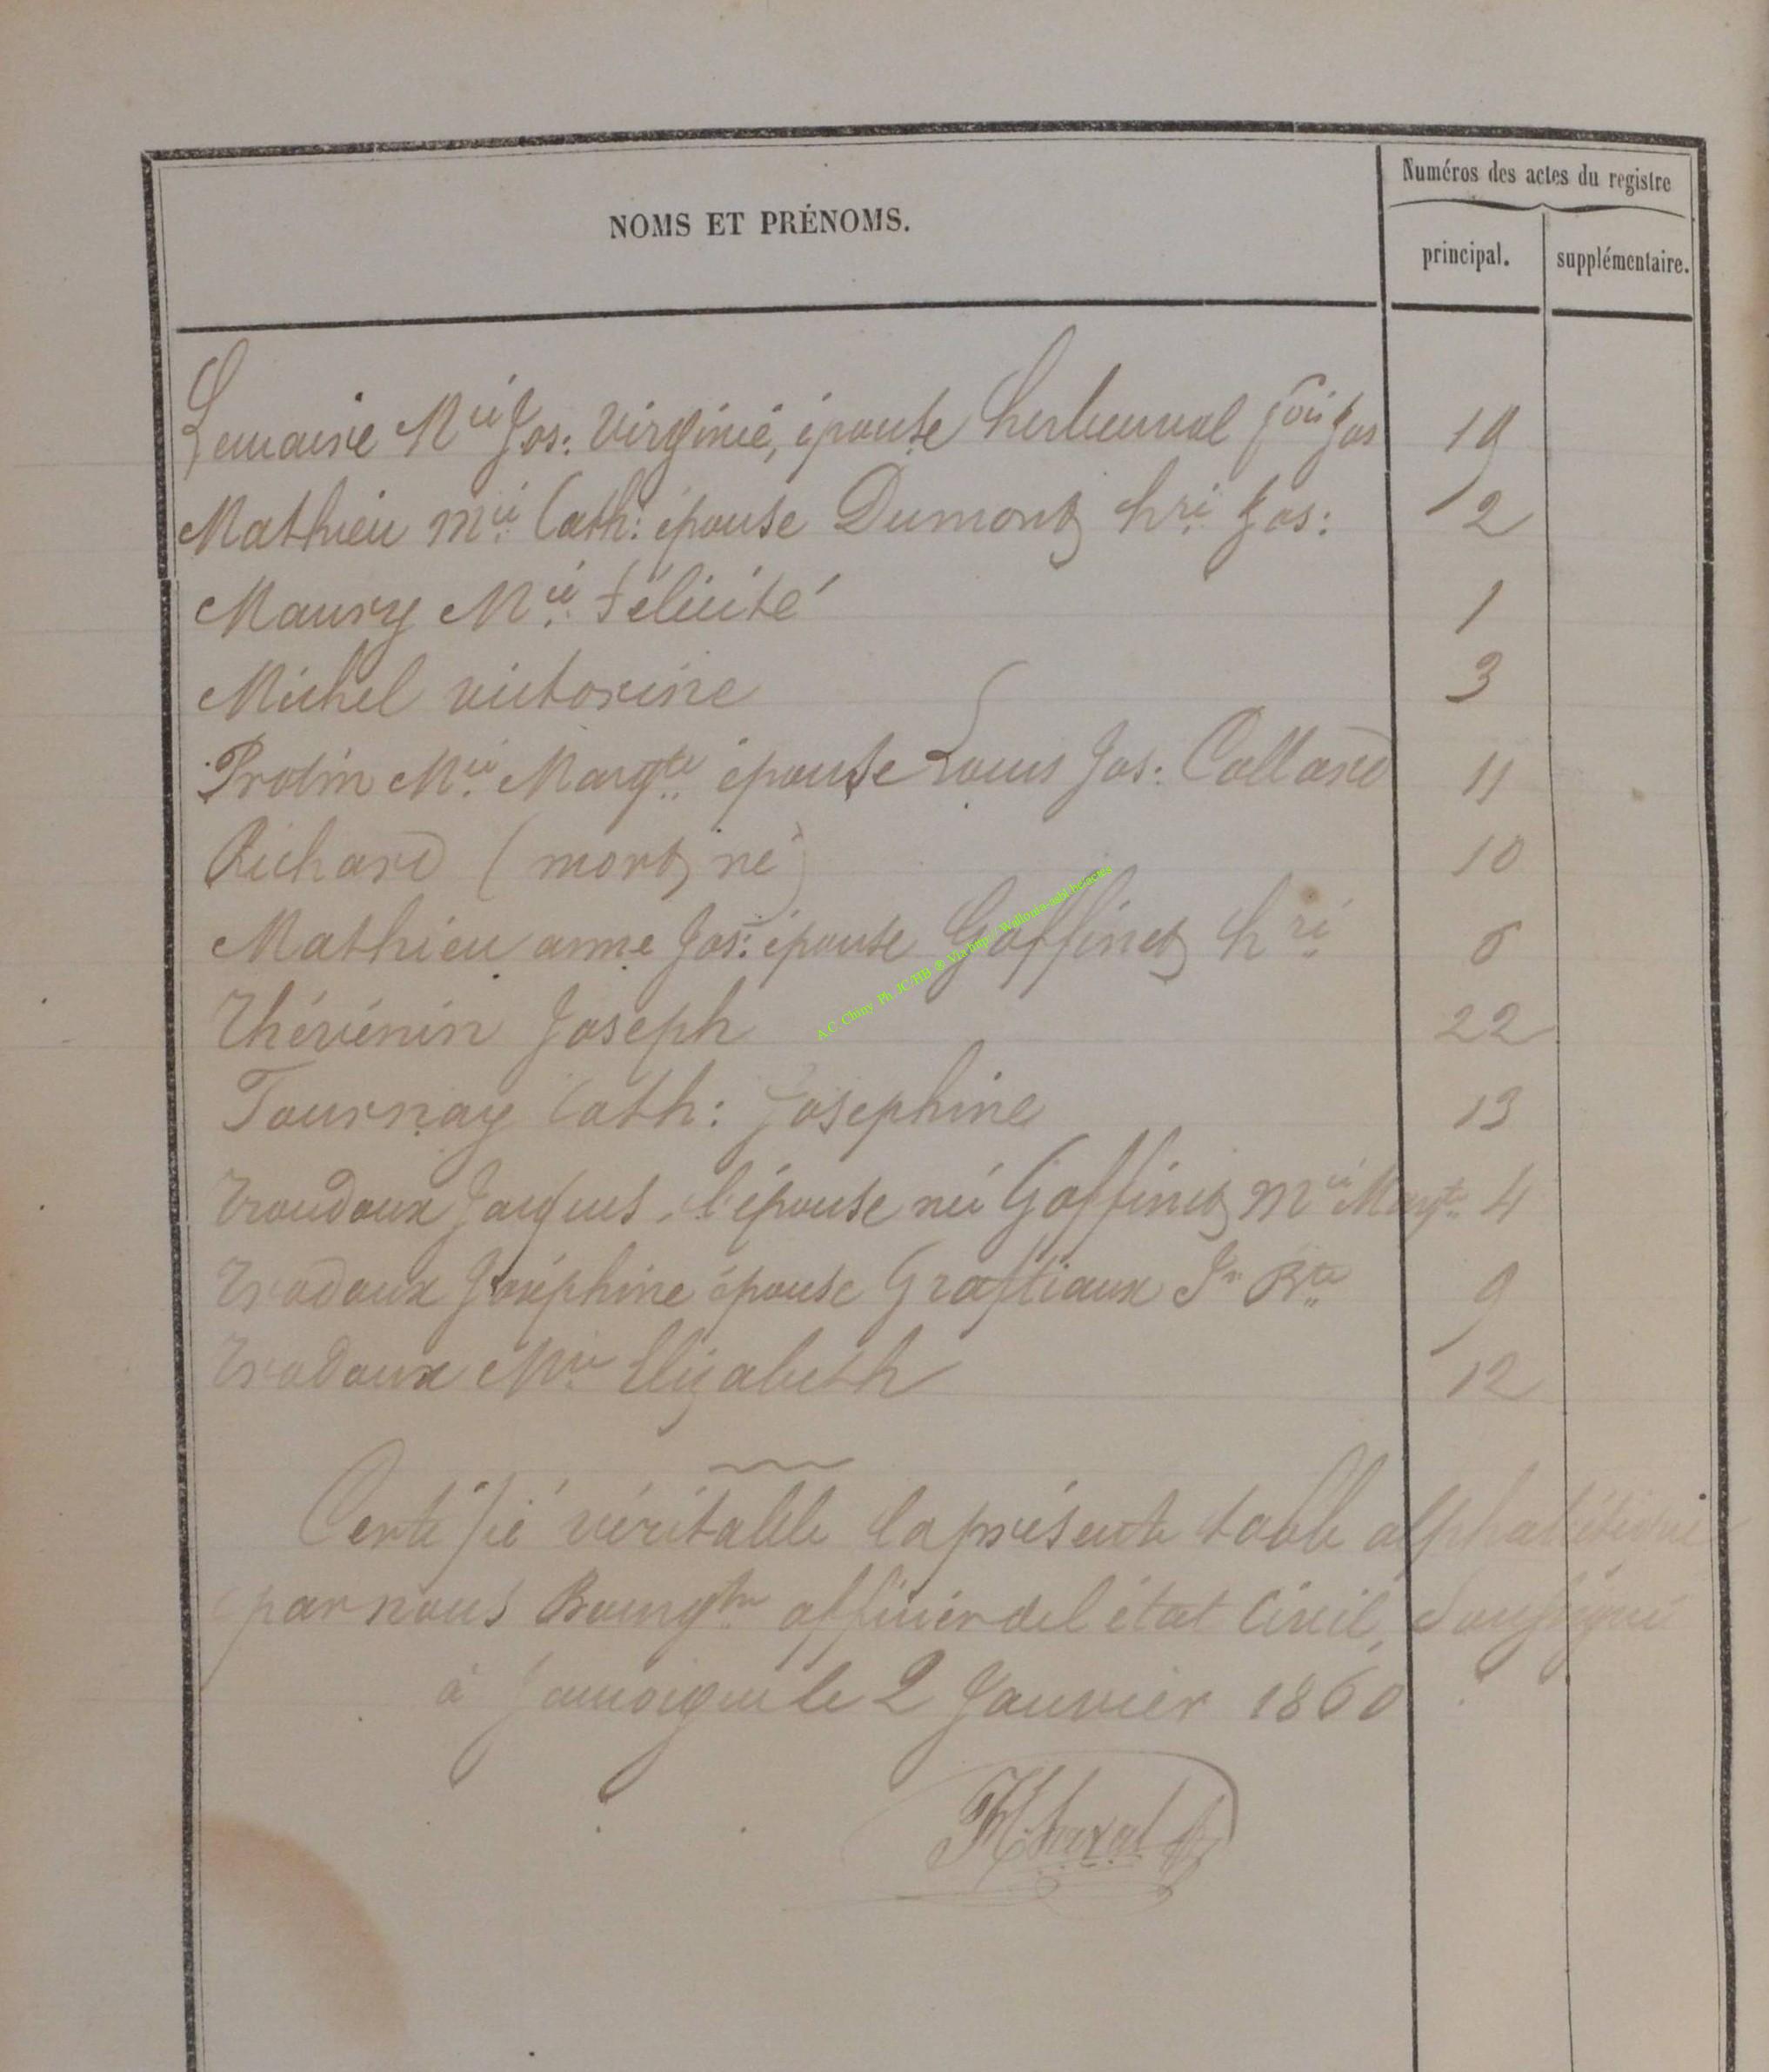 Numéros des actes du registre
NOMS ET PRÉNOMS.
principal. supplémentaire.
Lemaire Mie Jos: Virginie, épouse herbeuval fois Jos 19
Mathieu mie Cath: épouse Dumont hri Jos: 2
Maury Mie Félicité 1
Michel victorine 3
Protin Mie Margte épouse Louis Jos: Collard 11
Richard (mort, né) 10
Mathieu anne Jos: épouse Goffinet hri 6
Thévénin Joseph 22
Tournay Cath: Josephine 13
Troudoux Jacques, l'épouse née Goffinet Mie Margte 4
Tradoux Joséphine épouse Graftiaux Jn Bte 9
Tradoux Mie Elizabeth 12
A.C. Chiny Ph. JC/HB ® Via http://Wallonia-asbl.be/actes
Certifié véritable la présente table alphabétique
par nous Bourgtre officier de l état Civil, Soussigné
à Jamoigne le 2 Janvier 1860